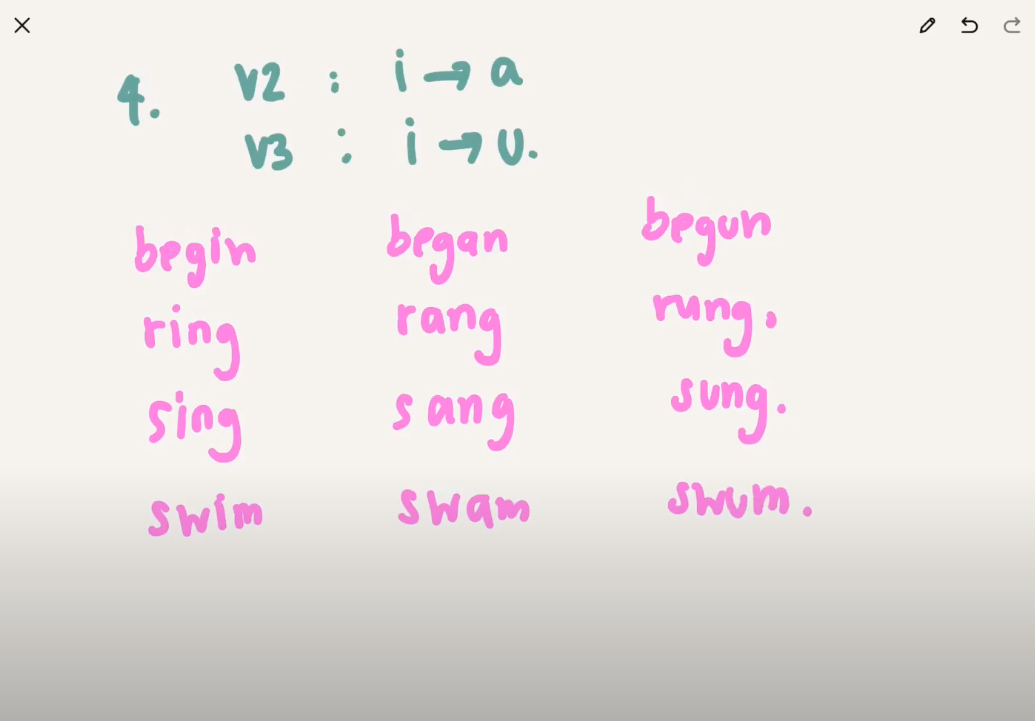 4. v2 : i → a
v3 : i → u.
begin began begun
ring rang rung.
sing sang sung.
swim swam swum.